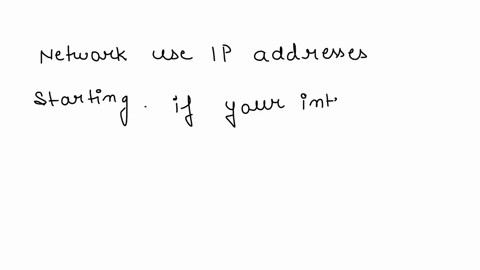 Network use IP addresses
Starting. if your int